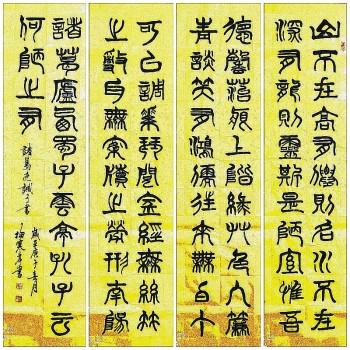 山不在高有僊則名水不在
深有龍則靈斯是陋室惟吾
德馨苔痕上階綠草色入簾
青談笑有鴻儒往來無白丁
可以調素琴閱金經無絲竹
之亂耳無案牘之勞形南陽
諸葛廬西蜀子雲亭孔子云
何陋之有
諸葛亮誡子書